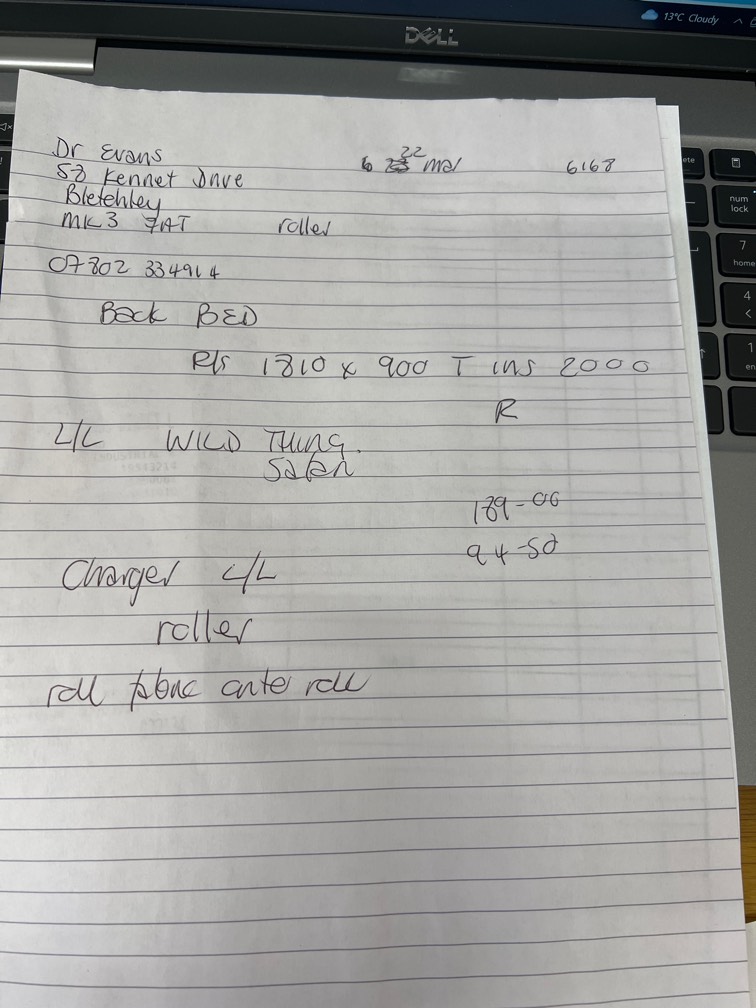 13°C Cloudy
DELL
Dr Evans
58 Kennet Drive
Bletchley
MK3 7AT
roller
6 22 Mar
6168
07802 334914
Back BED
R/S 1810 x 900 T ins 2000
R
L/L WILD THING.
Satan
189-00
94-50
Charger L/L
roller
roll fabric onto roll
num
lock
7
home
4
<
1
en